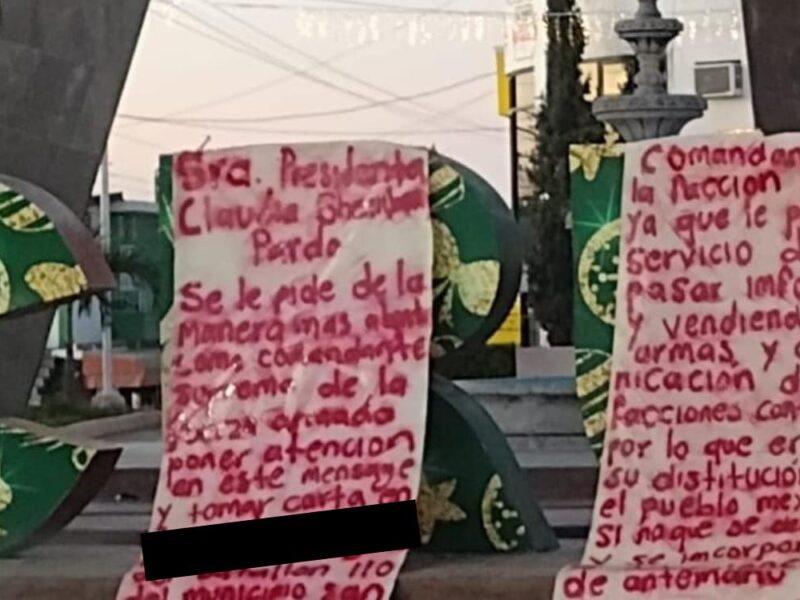 Sra. Presidenta
Claudia Sheinbaum
Pardo
Se le pide de la
manera mas atenta
como comandante
suprema de la
fuerza armada
poner atencion
en este mensaje
y tomar carta en
batallon 110
del municipio San
Comandan
la faccion
ya que le p
servicio d
pasar info
y vendiend
armas y
nicación d
facciones con
por lo que en
su distitució
el pueblo mex
si naque se
y se incorpo
de antemano